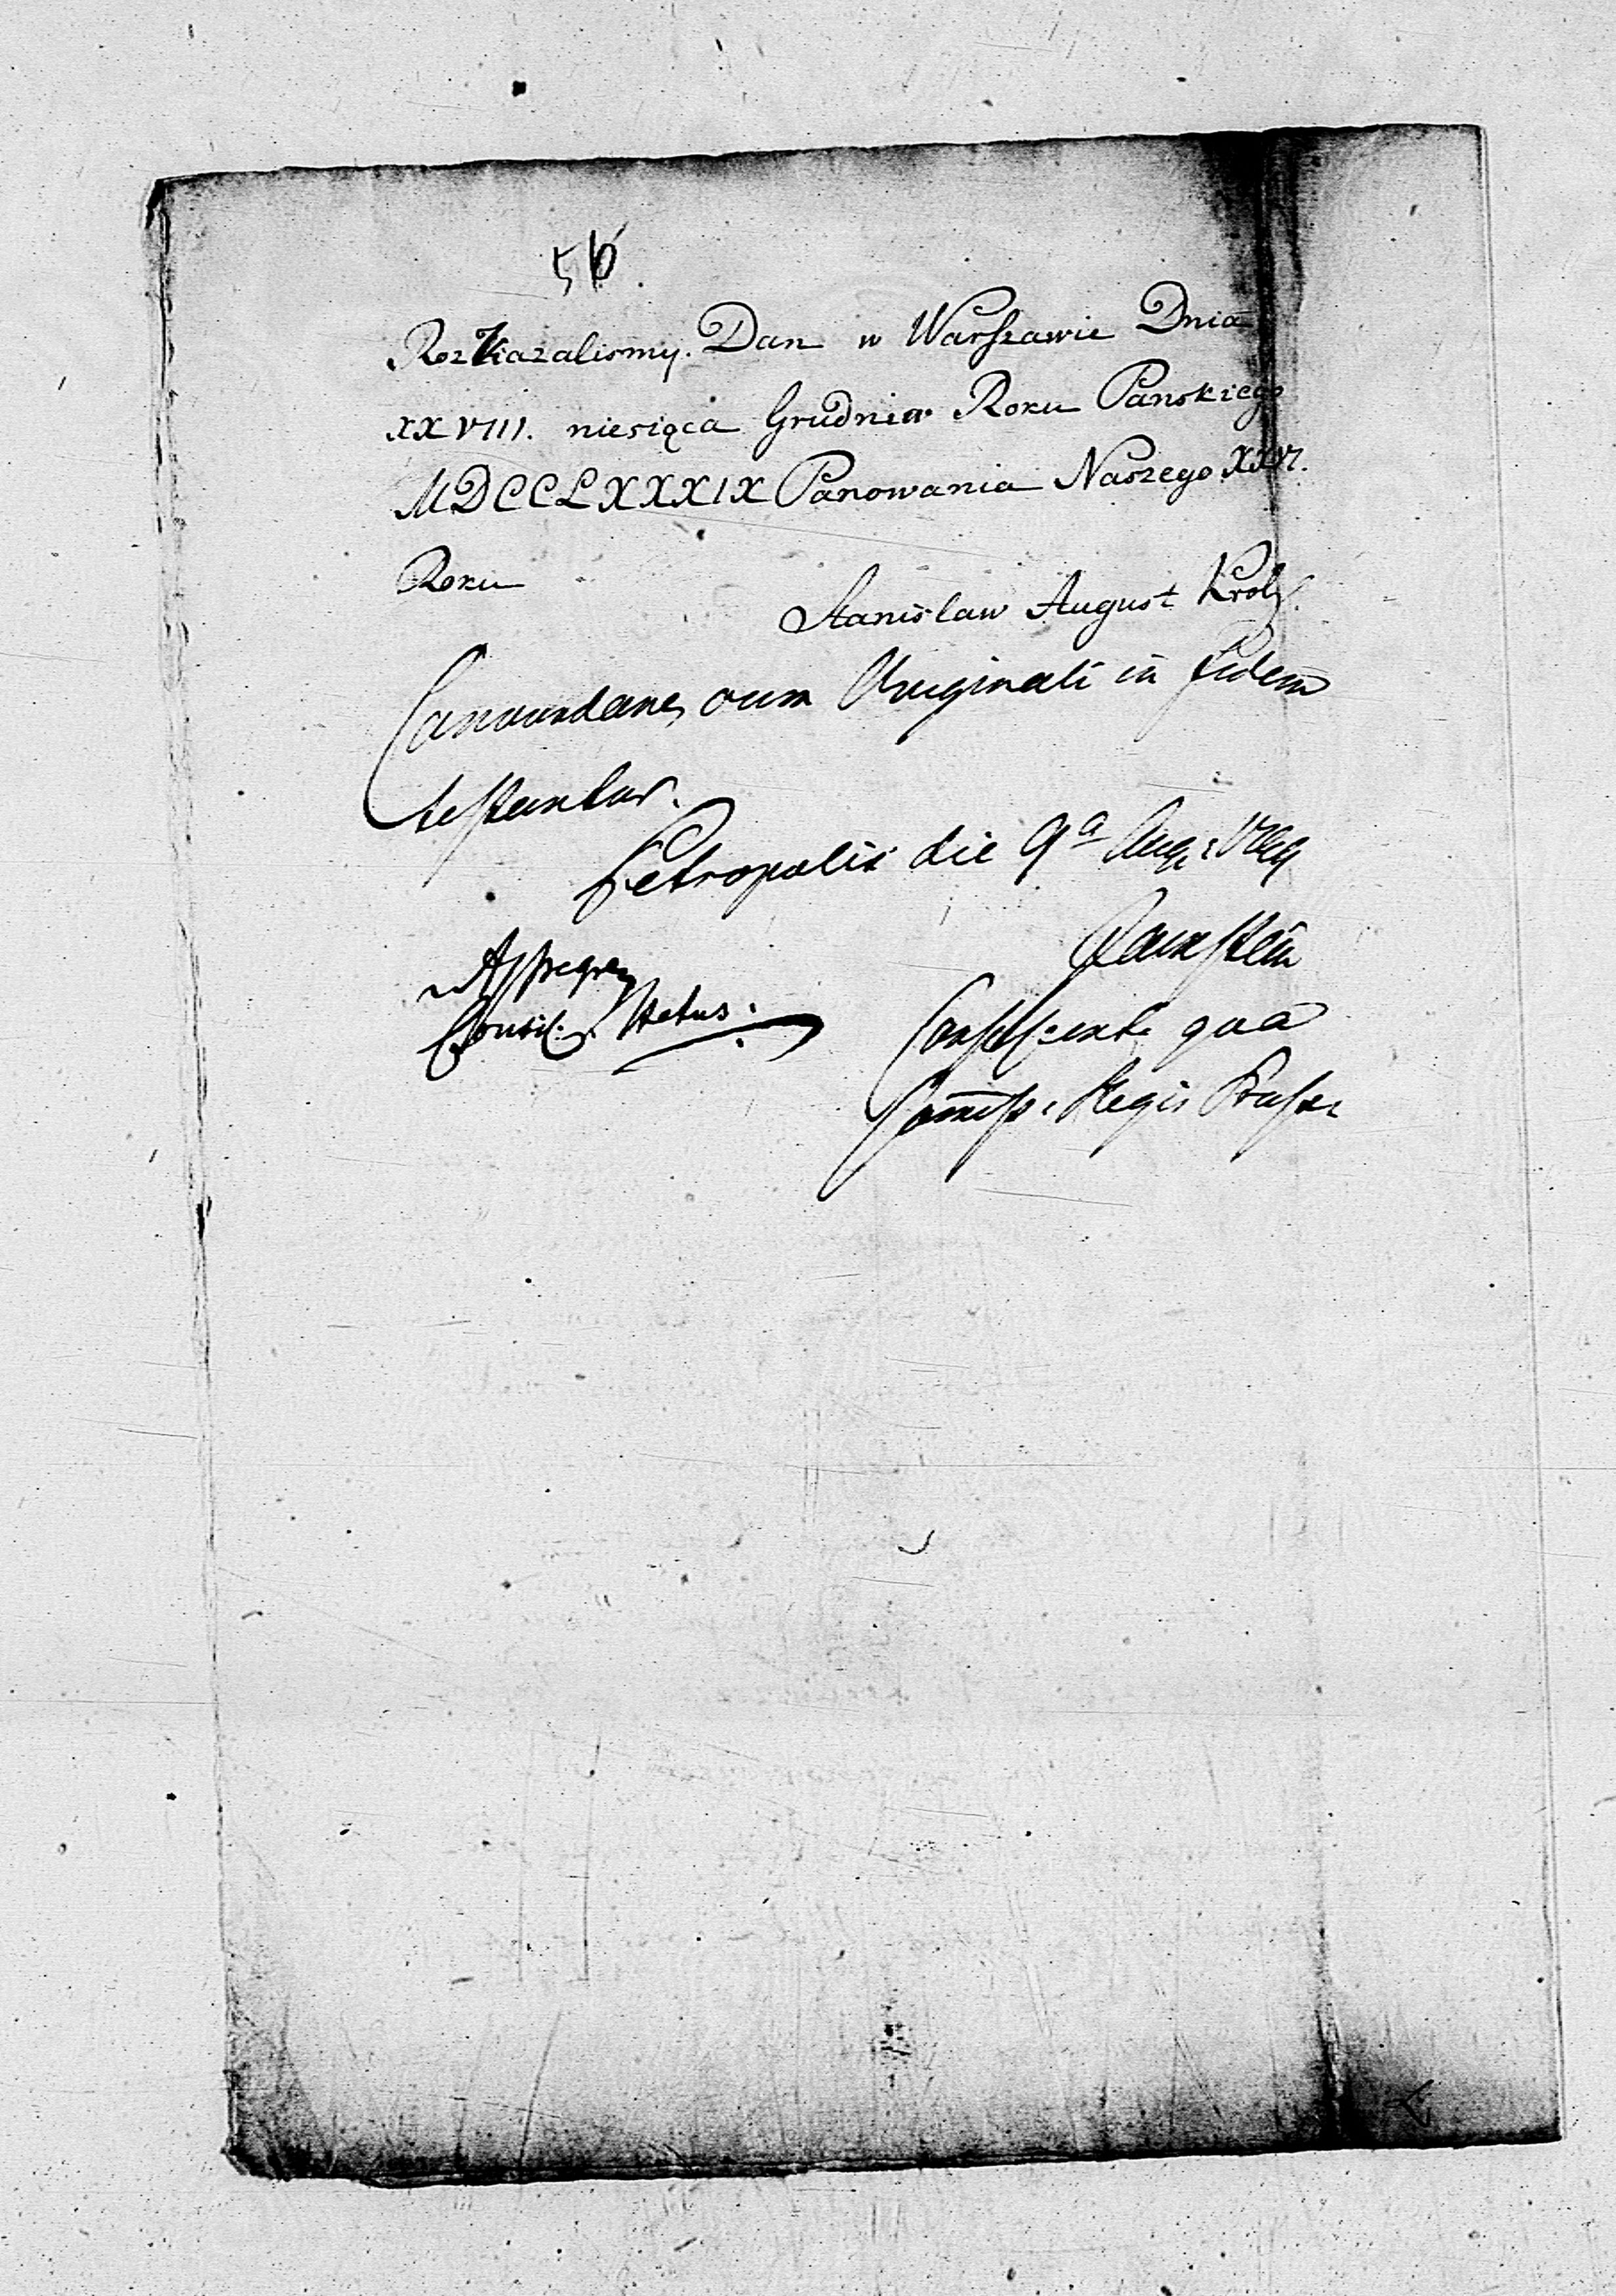 56.
Rozkazalismy. Dan w Warszawie Dnia
XXVIII. niesiąca Grudnia Roku Panskiego
MDCCLXXXIX Panowania Naszego XXVI.
Roku
Stanislaw August Krol
Concordare cum Originali in fidem
testantur.
Petropolis die 9a Aug:
Consil: Status.
qua
Commiss: Regis Pruss: